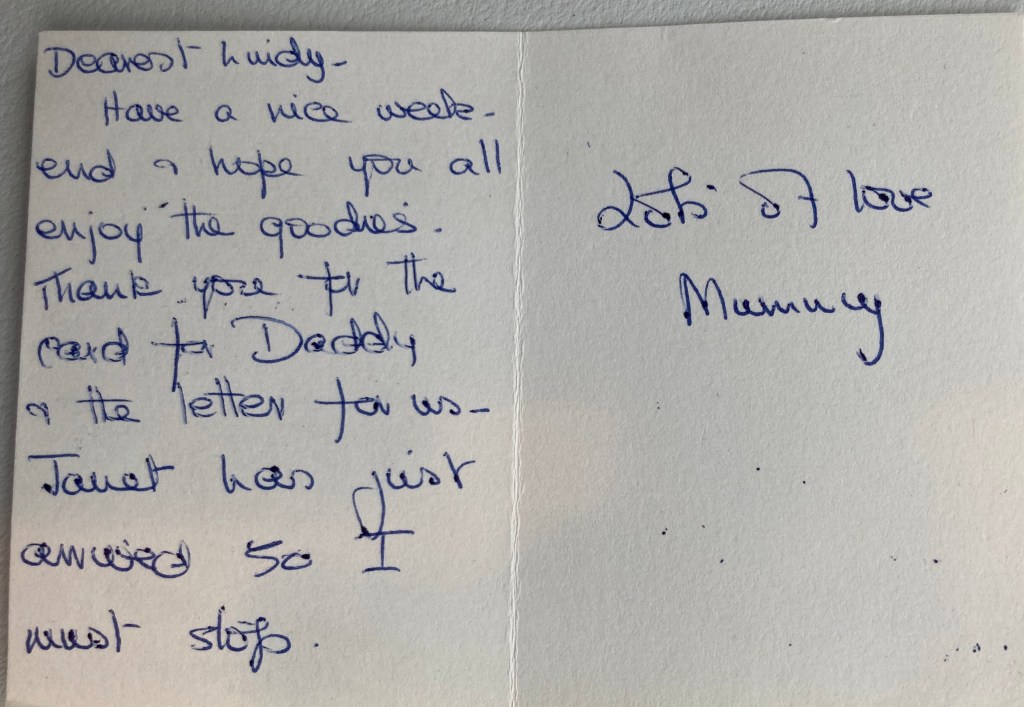 Dearest Lindy -
Have a nice week-
end & hope you all
enjoy the goodies.
Thank you for the
card for Daddy
& the letter for us -
Janet has just
arrived so I
must stop.
Lots of love
Mummy